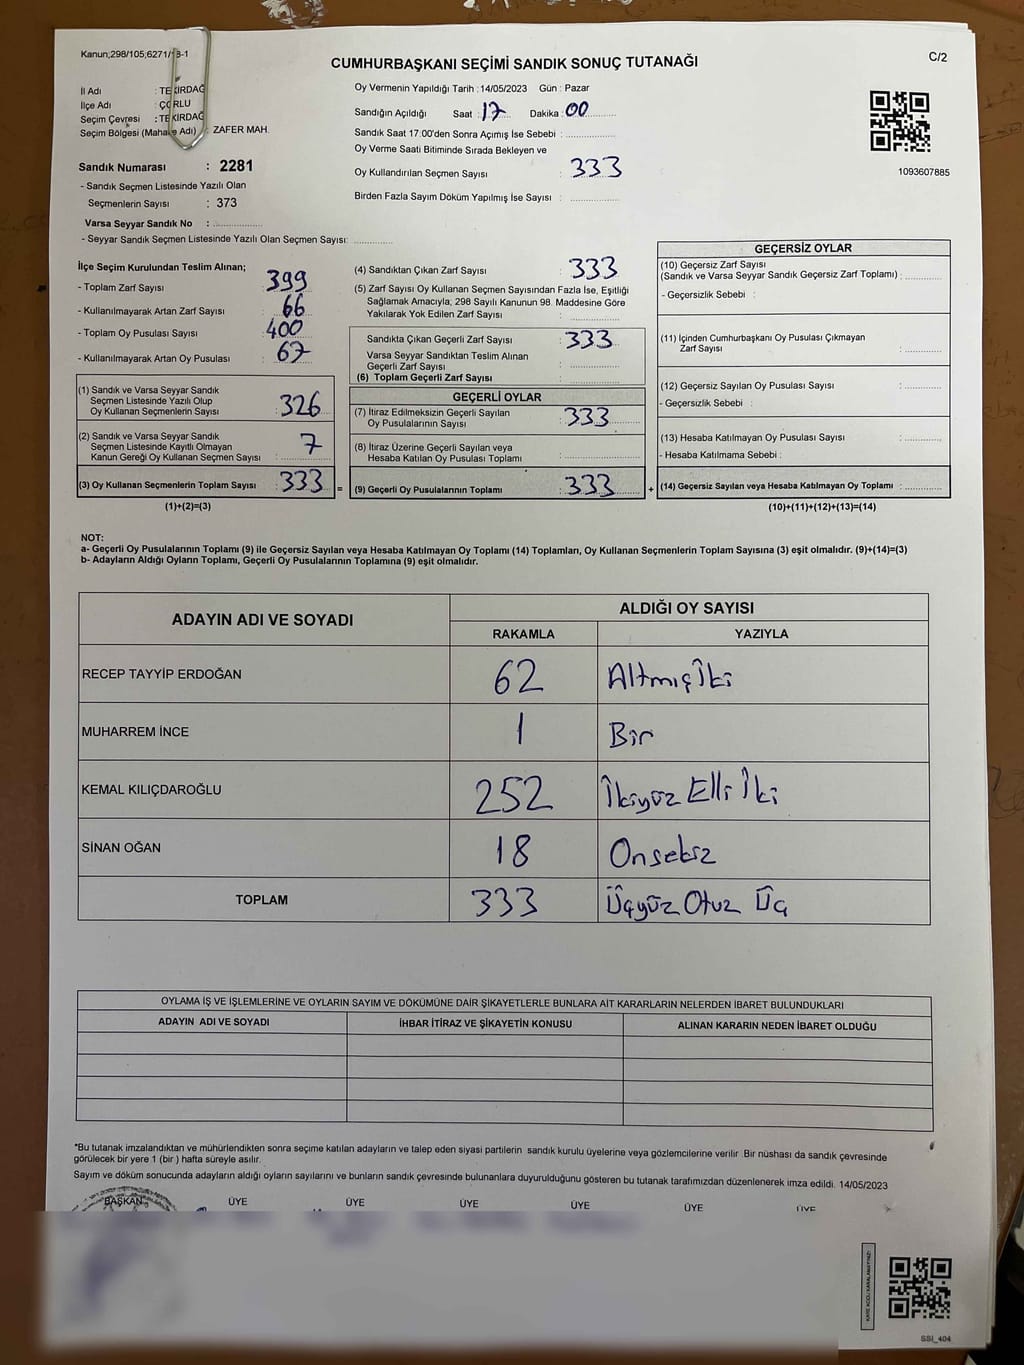 Kanun;298/105;6271/18-1
CUMHURBAŞKANI SEÇİMİ SANDIK SONUÇ TUTANAĞI
C/2
İl Adı : TEKİRDAĞ
İlçe Adı : ÇORLU
Seçim Çevresi : TEKİRDAĞ
Seçim Bölgesi (Mahalle Adı) : ZAFER MAH.
Oy Vermenin Yapıldığı Tarih : 14/05/2023 Gün : Pazar
Sandığın Açıldığı Saat : 17 Dakika : 00
Sandık Saat 17:00'den Sonra Açımış İse Sebebi :
Oy Verme Saati Bitiminde Sırada Bekleyen ve
Oy Kullandırılan Seçmen Sayısı : 333
Birden Fazla Sayım Döküm Yapılmış İse Sayısı :
1093607885
Sandık Numarası : 2281
- Sandık Seçmen Listesinde Yazılı Olan
Seçmenlerin Sayısı : 373
Varsa Seyyar Sandık No :
- Seyyar Sandık Seçmen Listesinde Yazılı Olan Seçmen Sayısı:
İlçe Seçim Kurulundan Teslim Alınan;
- Toplam Zarf Sayısı : 399
- Kullanılmayarak Artan Zarf Sayısı : 66
- Toplam Oy Pusulası Sayısı : 400
- Kullanılmayarak Artan Oy Pusulası : 67
(1) Sandık ve Varsa Seyyar Sandık
Seçmen Listesinde Yazılı Olup
Oy Kullanan Seçmenlerin Sayısı : 326
(2) Sandık ve Varsa Seyyar Sandık
Seçmen Listesinde Kayıtlı Olmayan
Kanun Gereği Oy Kullanan Seçmen Sayısı : 7
(3) Oy Kullanan Seçmenlerin Toplam Sayısı : 333 =
(1)+(2)=(3)
(4) Sandıktan Çıkan Zarf Sayısı : 333
(5) Zarf Sayısı Oy Kullanan Seçmen Sayısından Fazla İse, Eşitliği
Sağlamak Amacıyla; 298 Sayılı Kanunun 98. Maddesine Göre
Yakılarak Yok Edilen Zarf Sayısı :
Sandıkta Çıkan Geçerli Zarf Sayısı : 333
Varsa Seyyar Sandıktan Teslim Alınan
Geçerli Zarf Sayısı :
(6) Toplam Geçerli Zarf Sayısı :
GEÇERLİ OYLAR
(7) İtiraz Edilmeksizin Geçerli Sayılan
Oy Pusulalarının Sayısı : 333
(8) İtiraz Üzerine Geçerli Sayılan veya
Hesaba Katılan Oy Pusulası Toplamı :
(9) Geçerli Oy Pusulalarının Toplamı : 333 +
GEÇERSİZ OYLAR
(10) Geçersiz Zarf Sayısı
(Sandık ve Varsa Seyyar Sandık Geçersiz Zarf Toplamı) :
- Geçersizlik Sebebi :
(11) İçinden Cumhurbaşkanı Oy Pusulası Çıkmayan
Zarf Sayısı :
(12) Geçersiz Sayılan Oy Pusulası Sayısı :
- Geçersizlik Sebebi :
(13) Hesaba Katılmayan Oy Pusulası Sayısı :
- Hesaba Katılmama Sebebi :
(14) Geçersiz Sayılan veya Hesaba Katılmayan Oy Toplamı :
(10)+(11)+(12)+(13)=(14)
NOT:
a- Geçerli Oy Pusulalarının Toplamı (9) ile Geçersiz Sayılan veya Hesaba Katılmayan Oy Toplamı (14) Toplamları, Oy Kullanan Seçmenlerin Toplam Sayısına (3) eşit olmalıdır. (9)+(14)=(3)
b- Adayların Aldığı Oyların Toplamı, Geçerli Oy Pusulalarının Toplamına (9) eşit olmalıdır.
ADAYIN ADI VE SOYADI
ALDIĞI OY SAYISI
RAKAMLA YAZIYLA
RECEP TAYYİP ERDOĞAN 62 Altmışİki
MUHARREM İNCE 1 Bir
KEMAL KILIÇDAROĞLU 252 İkiyüz Elli İki
SİNAN OĞAN 18 Onsekiz
TOPLAM 333 Üçyüz Otuz Üç
OYLAMA İŞ VE İŞLEMLERİNE VE OYLARIN SAYIM VE DÖKÜMÜNE DAİR ŞİKAYETLERLE BUNLARA AİT KARARLARIN NELERDEN İBARET BULUNDUKLARI
ADAYIN ADI VE SOYADI İHBAR İTİRAZ VE ŞİKAYETİN KONUSU ALINAN KARARIN NEDEN İBARET OLDUĞU
*Bu tutanak imzalandıktan ve mühürlendikten sonra seçime katılan adayların ve talep eden siyasi partilerin sandık kurulu üyelerine veya gözlemcilerine verilir .Bir nüshası da sandık çevresinde
görülecek bir yere 1 (bir ) hafta süreyle asılır.
Sayım ve döküm sonucunda adayların aldığı oyların sayılarını ve bunların sandık çevresinde bulunanlara duyurulduğunu gösteren bu tutanak tarafımızdan düzenlenerek imza edildi. 14/05/2023
BAŞKAN ÜYE ÜYE ÜYE ÜYE ÜYE ÜYE
KARE KODU KARALAMAYINIZ!
SSI_404